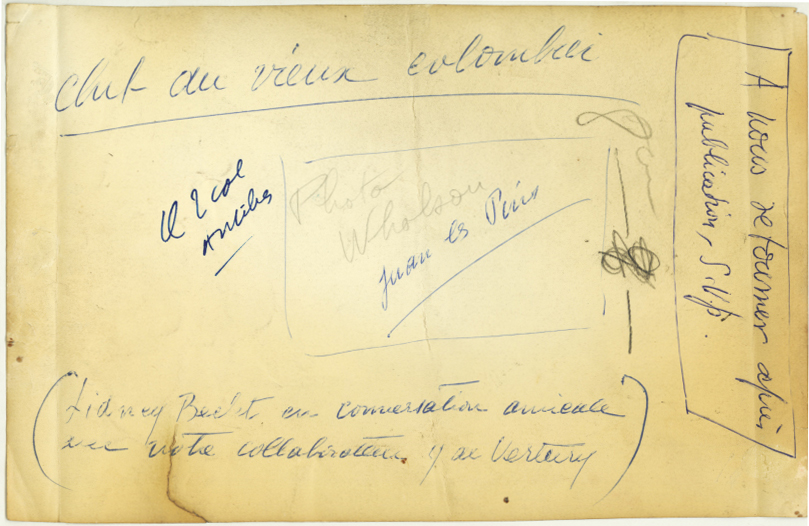 Club du vieux colombier
A nous retourner après
publication, S.V.P.
2 col
Antibes
Photo
Wholson
Juan les Pins
(Sidney Bechet en conversation amicale
avec notre collaborateur Y de Vertury)